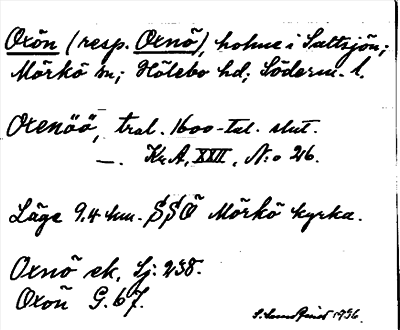 Oxön (resp. Oxnö), holme i Saltsjön;
Mörkö sn; Hölebo hd; Söderm. l.
Oxenöö, tral. 1600-tal. slut.
—. Kr A, XXII, N:o 26.
Läge 9.4 km. SSO Mörkö kyrka.
Oxnö ek, Sj: 238.
Oxön G. 67.
1936.